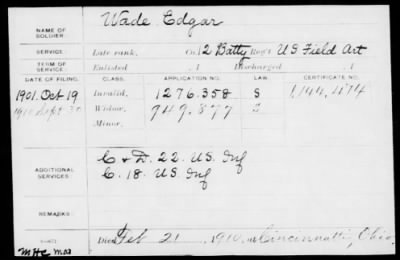 NAME OF SOLDIER: Wade Edgar
SERVICE: Late rank, Co. 12 Batty Reg't U S Field Art
TERM OF SERVICE: Enlisted , 1 Discharged , 1
DATE OF FILING. CLASS. APPLICATION NO. LAW. CERTIFICATE NO.
1901. Oct 19 Invalid, 1276.358 S 1,144,474
1910 Sept 30 Widow, 949.877 S
Minor,
ADDITIONAL SERVICES: C & D. 22. U.S. Inf
C. 18. U.S. Inf
REMARKS:
Died Feb 21 1910, at Cincinnatti, Ohio
MHC